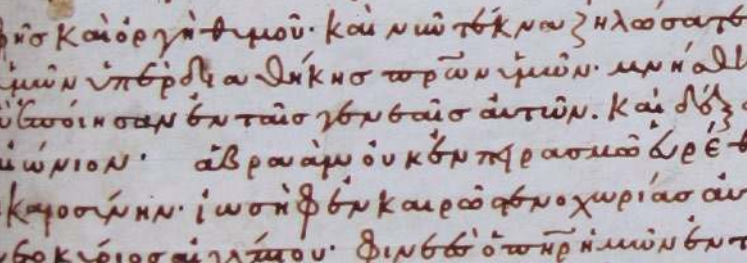 φῆς καὶ ὀργὴ θυμοῦ· καὶ νῦν τέκνα ζηλώσατε
ὑμῶν ὑπὲρ διαθήκης πρ̅ων ἡμῶν· μνήσθη
ἐποίησαν ἐν ταῖς γενεαῖς αὐτῶν. καὶ δέξα
αἰώνιον· ἀβραὰμ οὐκ ἐν πειρασμῶ εὑρέθ
καιοσύνην· ἰωσὴφ ἐν καιρῶ στενοχωρίας αὐ
κύριος αἰγύπτου· φινεὲς ὁ πη̅ρ ἡμῶν ἐν τ